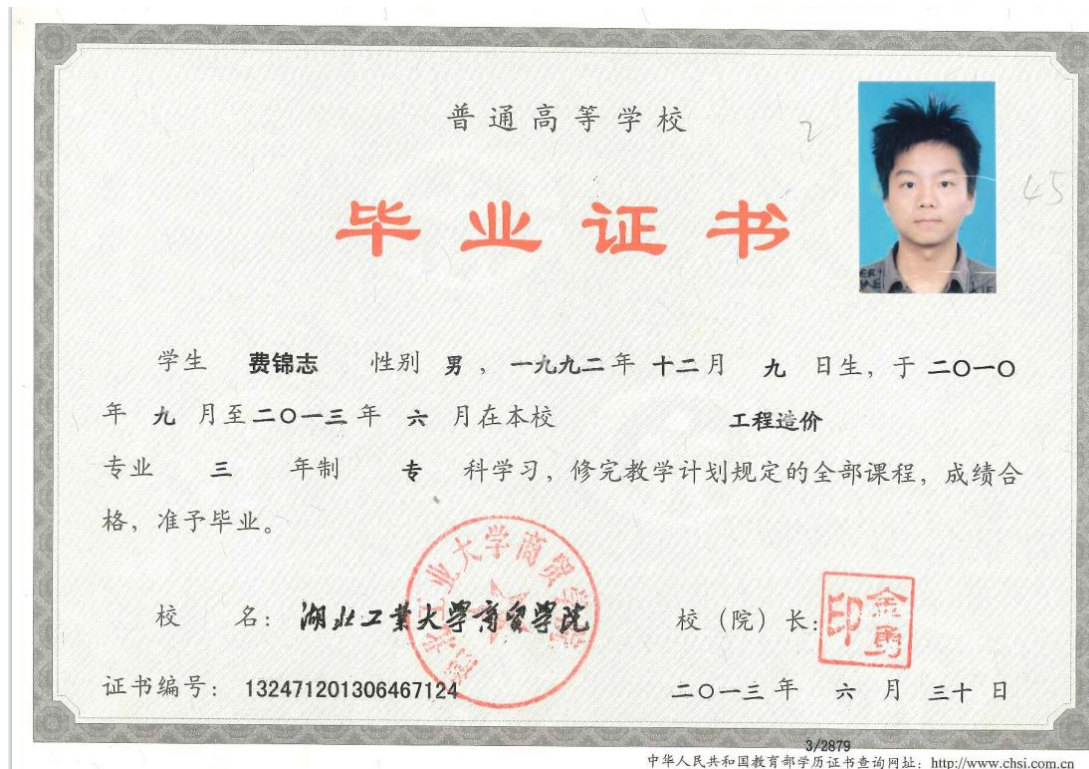 普通高等学校
2
45
毕业证书
学生 费锦志 性别 男，一九九二年 十二月 九 日生，于 二〇一〇
年 九 月至二〇一三年 六 月在本校 工程造价
专业 三 年制 专 科学习，修完教学计划规定的全部课程，成绩合
格，准予毕业。
湖北工业大学商贸学院
校 名：湖北工業大學商貿學院 校（院）长：
金勇印
证书编号：132471201306467124 二〇一三年 六 月 三十 日
3/2879
中华人民共和国教育部学历证书查询网址：http://www.chsi.com.cn